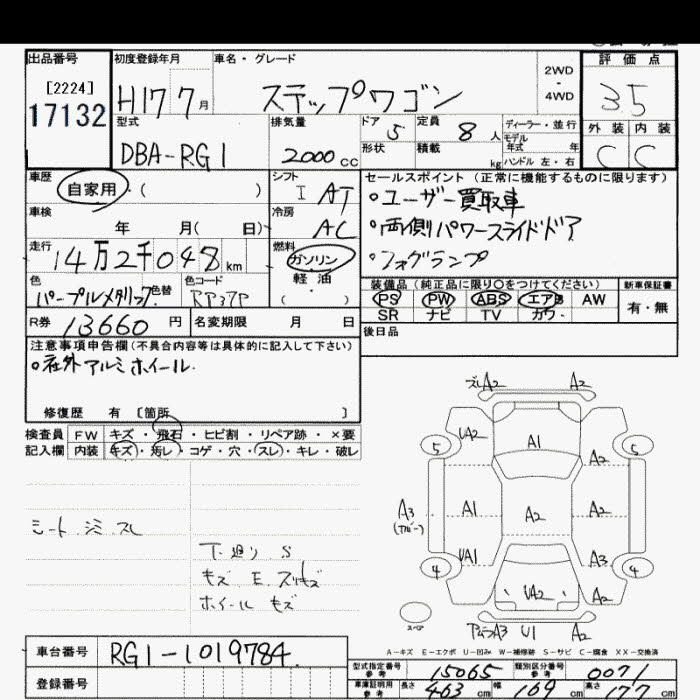 出品番号
[2224]
17132
初度登録年月
H17 7月
車名・グレード
ステップワゴン
2WD
・
4WD
評価点
35
外装 内装
C C
型式
DBA-RG1
排気量
2000cc
ドア 5
定員 8人
形状
積載 kg
ディーラー・並行
モデル年式 年
ハンドル 左・右
車歴
自家用・( )
シフト
I AT
車検
年 月( 日)
冷房
AC
走行
14万2千048km
燃料
ガソリン
軽油
( )
色
パープルメタリック
色替
色コード
RP37P
R券 13660円
名変期限 月 日
セールスポイント(正常に機能するものに限ります)
・ユーザー買取車
・両側パワースライドドア
・フォグランプ
装備品(純正品に限り○をつけてください)
PS PW ABS エアB AW
SR ナビ TV カワ・
新車保証書
有・無
後日品
注意事項申告欄(不具合内容等は具体的に記入して下さい)
・社外アルミホイール.
修復歴 有 [箇所 ]
検査員記入欄
FW キズ・飛石・ヒビ割・リペア跡・×要
内装 キズ・汚レ・コゲ・穴・スレ・キレ・破レ
シート.シミ.スレ
下廻り S
キズ E.スリキズ
ホイール キズ
A2 A2
5 UA2 A1 A2 5
A3 A1 A2 A2
UA1 A3
4 UA2 A2 4
スペア
A3 U1 A2
A-キズ E-エクボ U-凹み W-補修跡 S-サビ C-腐食 XX-交換済
車台番号 RG1-1019784
登録番号
型式指定番号 参考 15065
類別区分番号 参考 0071
車庫証明用 参考 長さ 463cm 幅 169cm 高さ 177cm